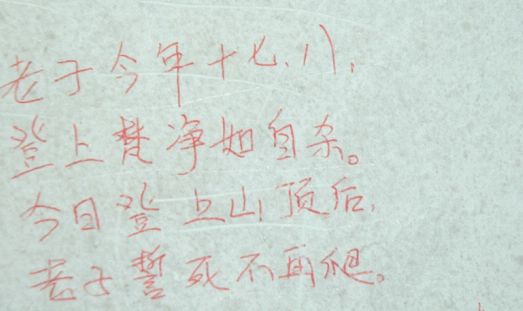 老子今年十七、八,
登上梵净如自杀。
今日登上山顶后,
老子誓死不再爬。